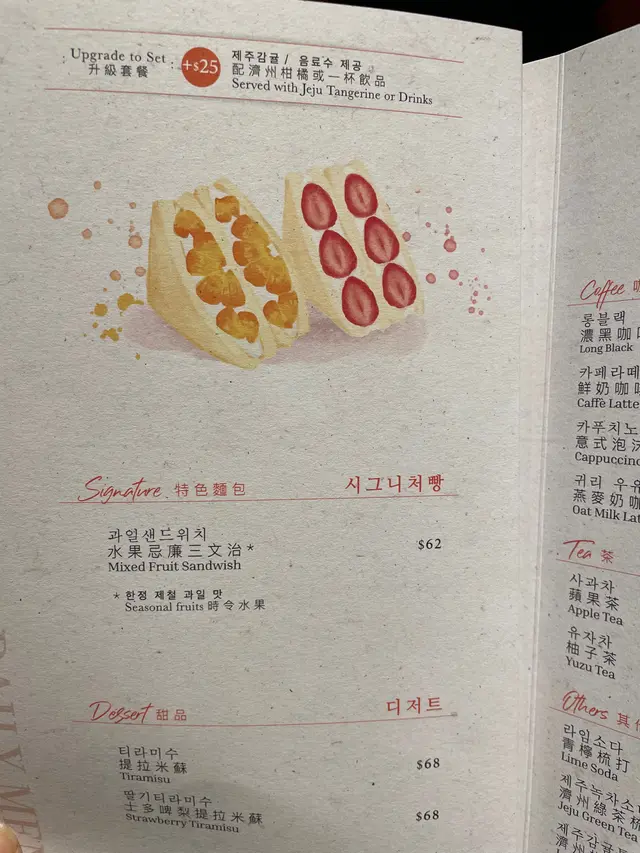 Upgrade to Set :
升級套餐
+$25
제주감귤 / 음료수 제공
配濟州柑橘或一杯飲品
Served with Jeju Tangerine or Drinks
Signature 特色麵包 시그니처빵
과일샌드위치
水果忌廉三文治*
Mixed Fruit Sandwish
$62
* 한정 제철 과일 맛
Seasonal fruits 時令水果
Dessert 甜品 디저트
티라미수
提拉米蘇
Tiramisu
$68
딸기티라미수
士多啤梨提拉米蘇
Strawberry Tiramisu
$68
Coffee
롱블랙
濃黑咖
Long Black
카페라떼
鮮奶咖
Caffè Latte
카푸치노
意式泡
Cappuccino
귀리 우유
燕麥奶
Oat Milk Lat
Tea 茶
사과차
蘋果茶
Apple Tea
유자차
柚子茶
Yuzu Tea
Others 其
라임소다
青檸梳打
Lime Soda
제주녹차소
濟州綠茶梳
Jeju Green Tea
제주감귤
濟州